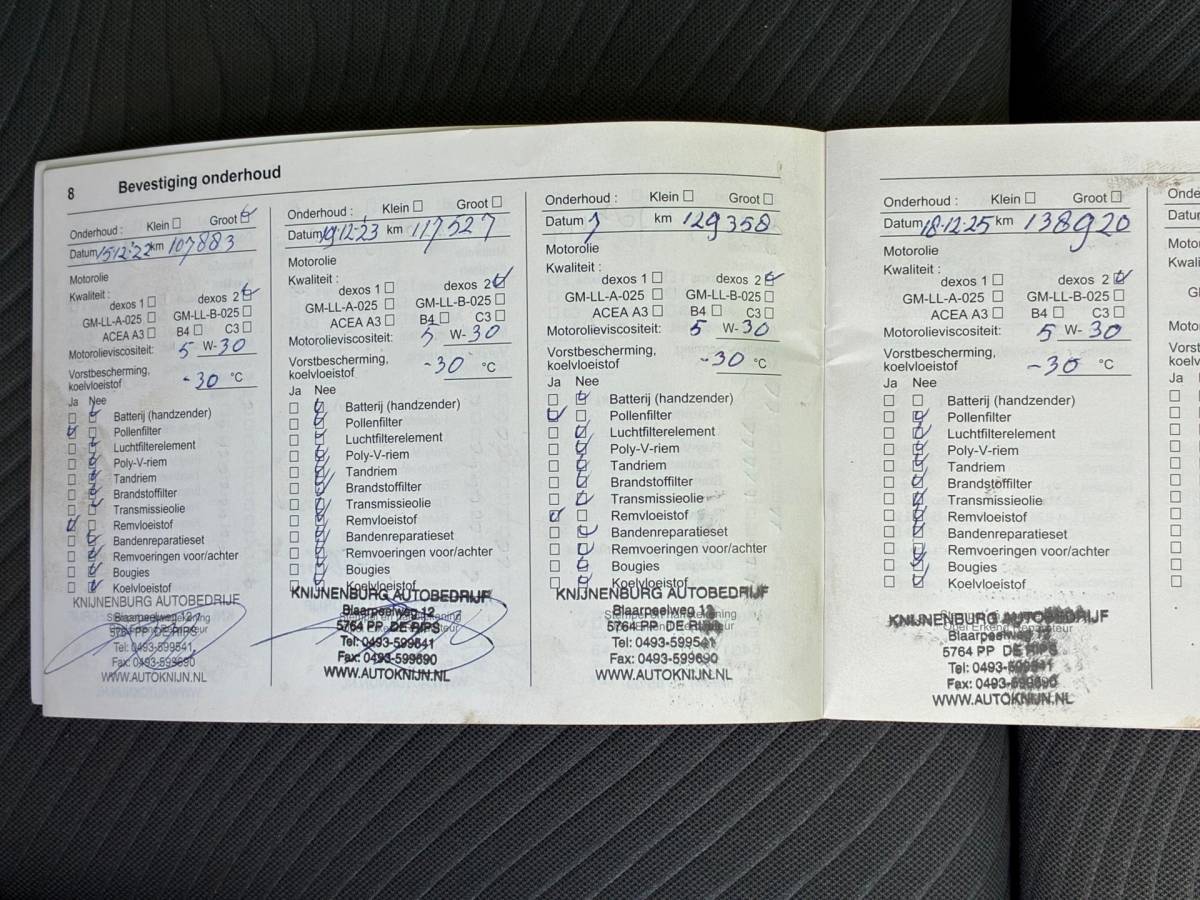 8 Bevestiging onderhoud
Onderhoud : Klein Groot
Datum 15.12.22 km 107883
Motorolie
Kwaliteit :
dexos 1 dexos 2
GM-LL-A-025 GM-LL-B-025
ACEA A3 B4 C3
Motorolieviscositeit: 5 W-30
Vorstbescherming,
koelvloeistof -30 °C
Ja Nee
Batterij (handzender)
Pollenfilter
Luchtfilterelement
Poly-V-riem
Tandriem
Brandstoffilter
Transmissieolie
Remvloeistof
Bandenreparatieset
Remvoeringen voor/achter
Bougies
Koelvloeistof
KNIJNENBURG AUTOBEDRIJF
Blaarpeelweg 12
5764 PP DE RIPS
Tel: 0493-599541
Fax: 0493-599690
WWW.AUTOKNIJN.NL
Onderhoud : Klein Groot
Datum 19.12.23 km 117527
Motorolie
Kwaliteit :
dexos 1 dexos 2
GM-LL-A-025 GM-LL-B-025
ACEA A3 B4 C3
Motorolieviscositeit: 5 W-30
Vorstbescherming,
koelvloeistof -30 °C
Ja Nee
Batterij (handzender)
Pollenfilter
Luchtfilterelement
Poly-V-riem
Tandriem
Brandstoffilter
Transmissieolie
Remvloeistof
Bandenreparatieset
Remvoeringen voor/achter
Bougies
Koelvloeistof
KNIJNENBURG AUTOBEDRIJF
Blaarpeelweg 12
5764 PP DE RIPS
Tel: 0493-599541
Fax: 0493-599690
WWW.AUTOKNIJN.NL
Onderhoud : Klein Groot
Datum km 129358
Motorolie
Kwaliteit :
dexos 1 dexos 2
GM-LL-A-025 GM-LL-B-025
ACEA A3 B4 C3
Motorolieviscositeit: 5 W-30
Vorstbescherming,
koelvloeistof -30 °C
Ja Nee
Batterij (handzender)
Pollenfilter
Luchtfilterelement
Poly-V-riem
Tandriem
Brandstoffilter
Transmissieolie
Remvloeistof
Bandenreparatieset
Remvoeringen voor/achter
Bougies
Koelvloeistof
KNIJNENBURG AUTOBEDRIJF
Blaarpeelweg 12
5764 PP DE RIPS
Tel: 0493-599541
Fax: 0493-599690
WWW.AUTOKNIJN.NL
Onderhoud : Klein Groot
Datum 18.12.25 km 138920
Motorolie
Kwaliteit :
dexos 1 dexos 2
GM-LL-A-025 GM-LL-B-025
ACEA A3 B4 C3
Motorolieviscositeit: 5 W-30
Vorstbescherming,
koelvloeistof -30 °C
Ja Nee
Batterij (handzender)
Pollenfilter
Luchtfilterelement
Poly-V-riem
Tandriem
Brandstoffilter
Transmissieolie
Remvloeistof
Bandenreparatieset
Remvoeringen voor/achter
Bougies
Koelvloeistof
KNIJNENBURG AUTOBEDRIJF
Blaarpeelweg 12
5764 PP DE RIPS
Tel: 0493-599541
Fax: 0493-599690
WWW.AUTOKNIJN.NL
Ja